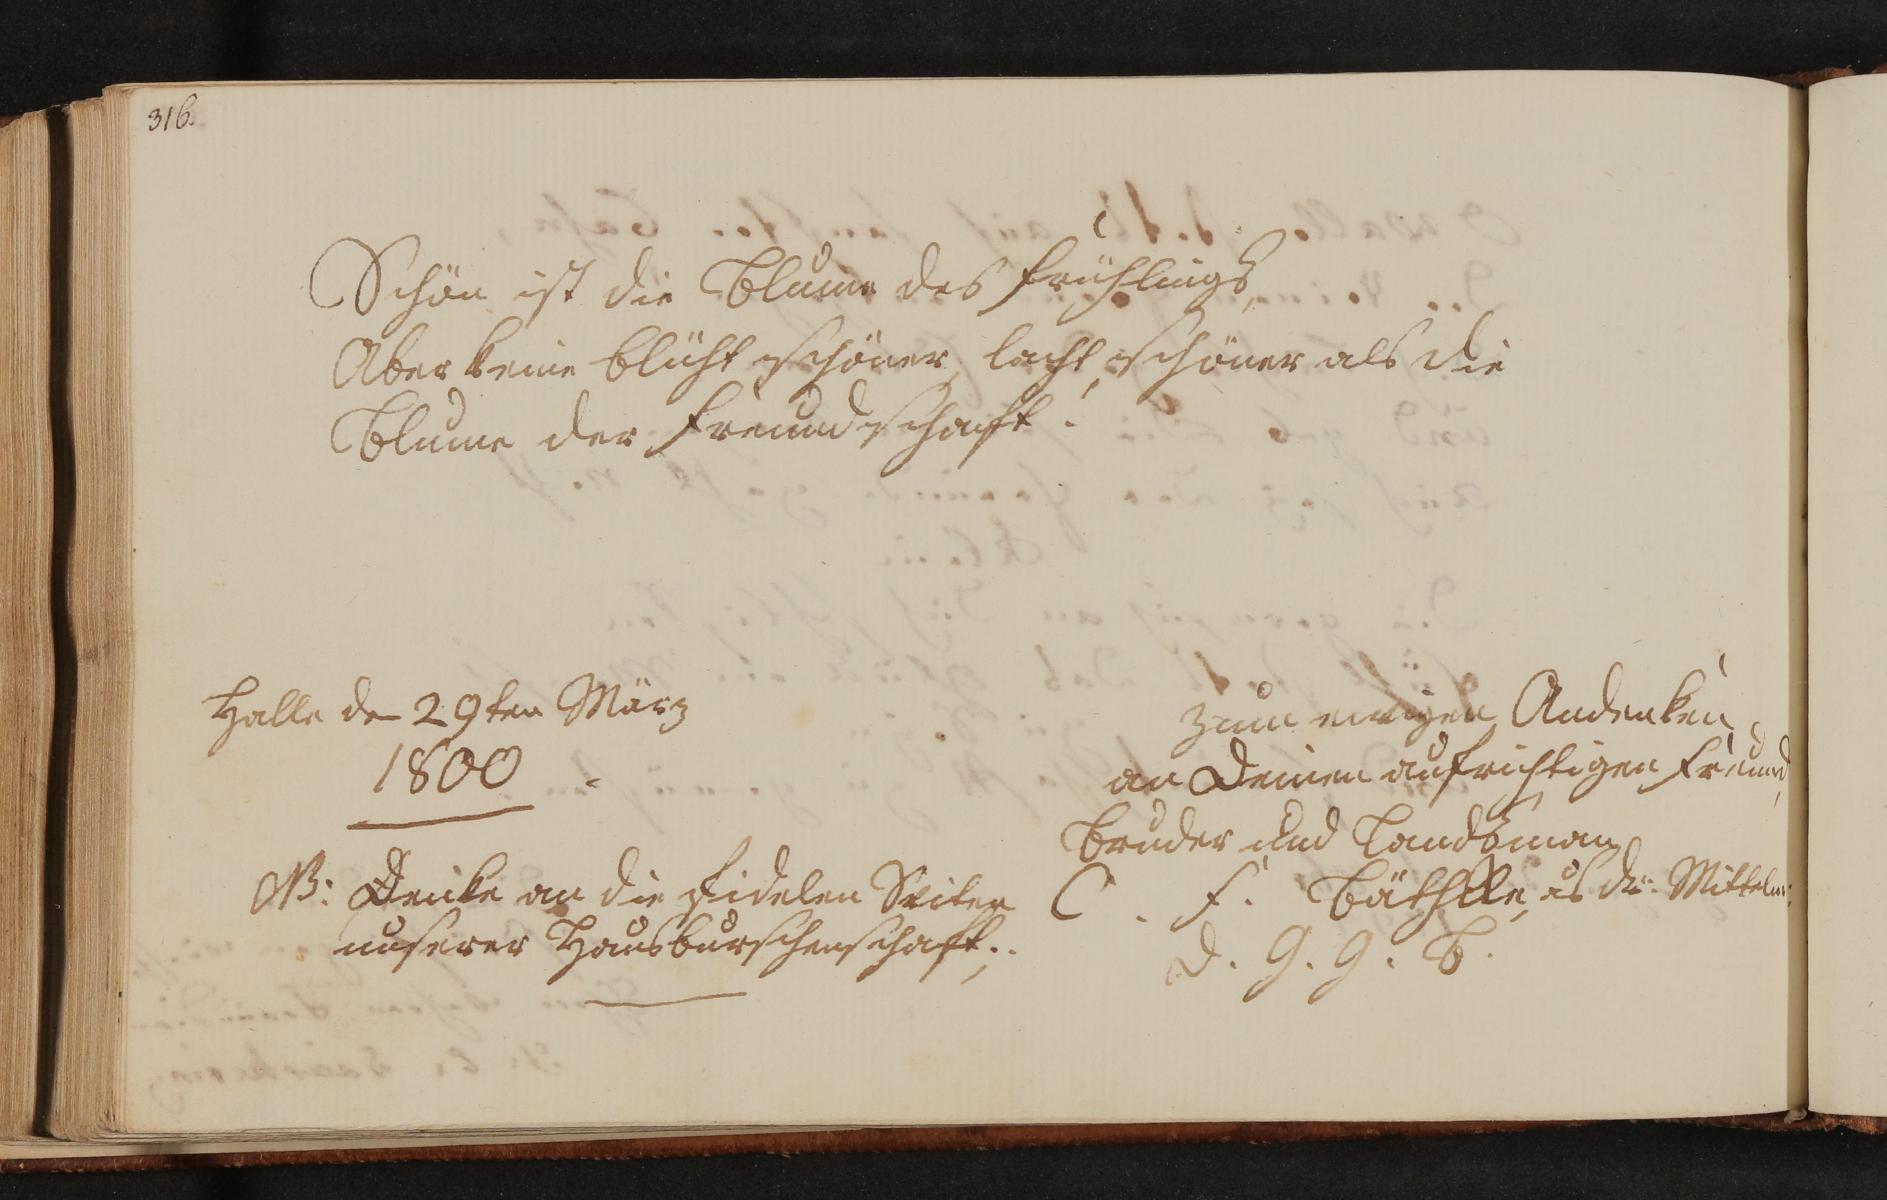 316.
Schön ist die Blume des Frühlings,
Aber keine blüht schöner, lacht schöner als die
Blume der Freundschaft!
Halle den 29ten März
1800
Zum ewigen Andenken
an Deinen aufrichtigen Freund,
Bruder und Landsman
C. F. Bäthke, aus der Mittelm:
D. G. G. B.
NB: Denke an die fidelen Suiten
unserer Hausburschenschaft.